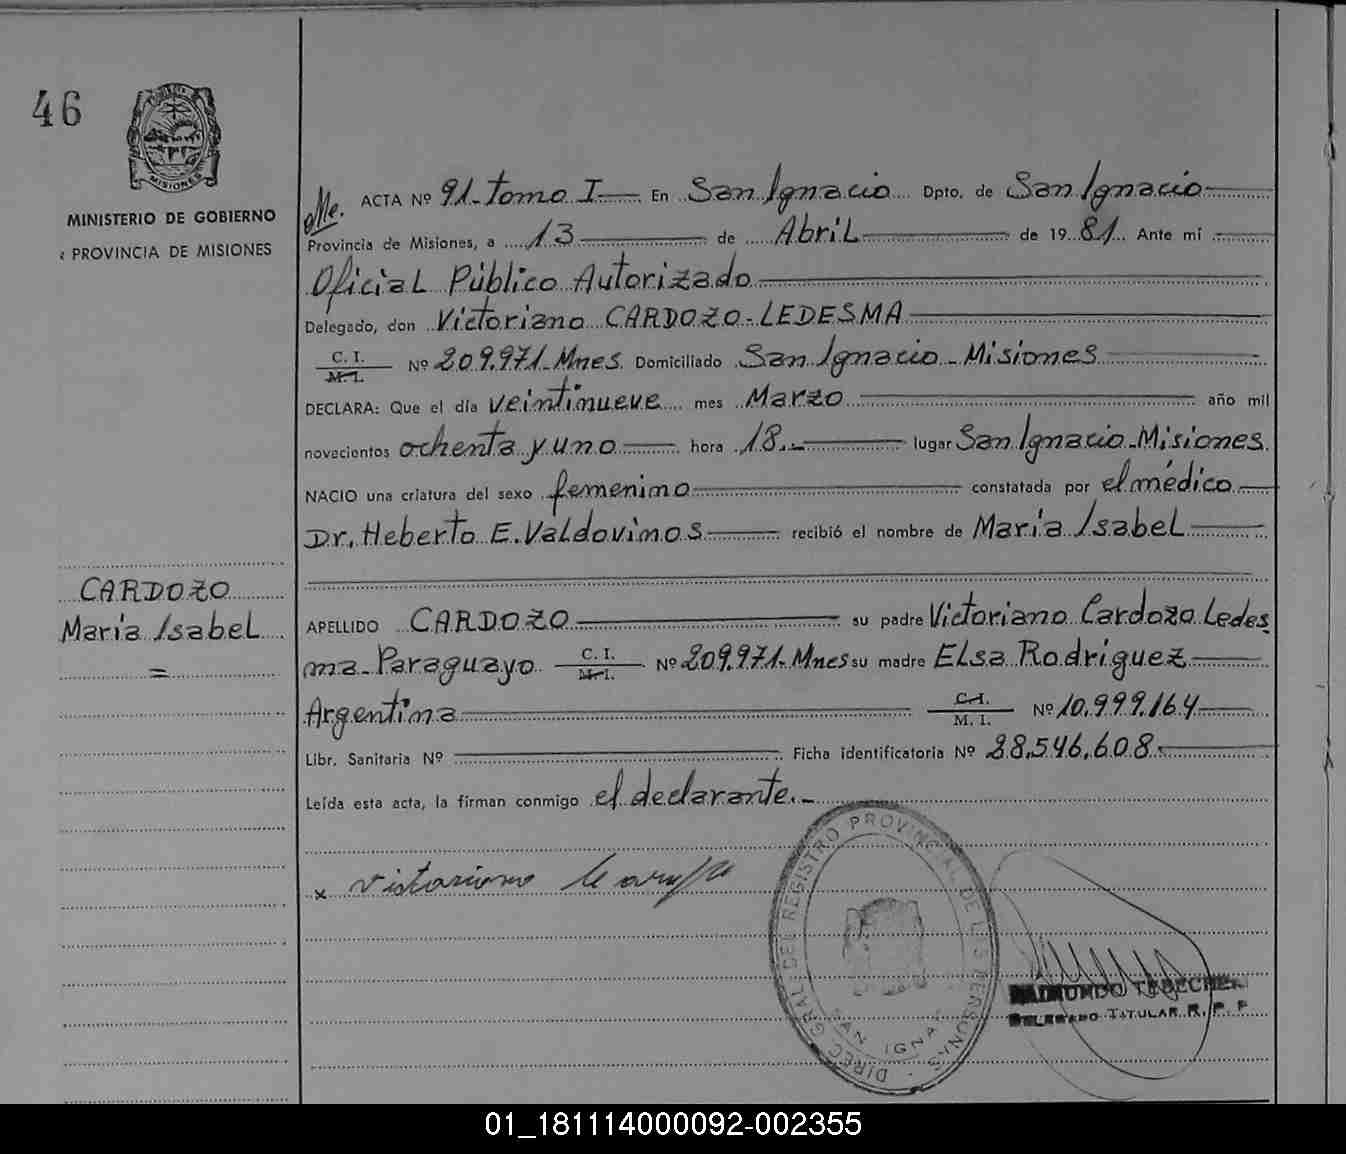 46
MISIONES
MINISTERIO DE GOBIERNO
PROVINCIA DE MISIONES
CARDOZO
María Isabel
=
Me. ACTA Nº 91-tomo I En San Ignacio Dpto. de San Ignacio
Provincia de Misiones, a 13 de Abril de 19 81 Ante mi
Oficial Público Autorizado
Delegado, don Victoriano CARDOZO-LEDESMA
C. I. M. I. Nº 209.971-Mnes Domiciliado San Ignacio-Misiones
DECLARA: Que el día veintinueve mes Marzo año mil
novecientos ochenta y uno hora 18.- lugar San Ignacio-Misiones
NACIO una criatura del sexo femenino constatada por el médico
Dr. Heberto E. Valdovinos recibió el nombre de María Isabel
APELLIDO CARDOZO su padre Victoriano Cardozo Ledes
ma-Paraguayo C. I. M. I. Nº 209.971-Mnes su madre Elsa Rodriguez
Argentina C. I. M. I. Nº 10.999.164
Libr. Sanitaria Nº Ficha identificatoria Nº 28.546.608
Leída esta acta, la firman conmigo el declarante.-
x Victoriano
DIREC. GRAL DEL REGISTRO PROVINCIAL DE LAS PERSONAS
SAN IGNA
RAIMUNDO
DELEGADO TITULAR R. P. P.
01_181114000092-002355